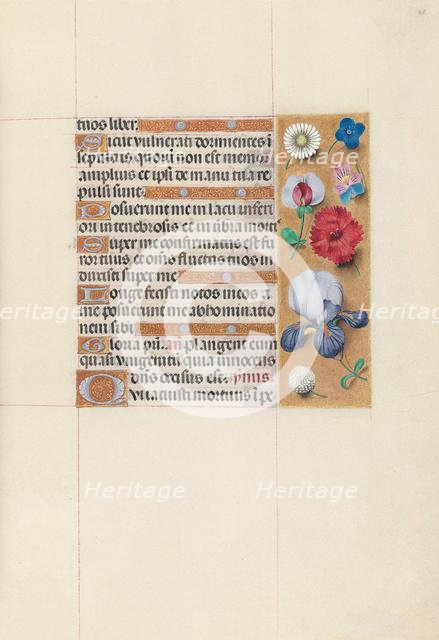 tuos liber.
Sicut vulnerati dormientes i
sepulcris quorū non est memor
amplius et ipsi de manu tua re
pulsi sunt.
Posuerunt me in lacu inferi
ori in tenebrosis et in umbra morti
Super me confirmatus est fu
ror tuus et om̄s fluctus tuos in
duxisti super me.
Longe fecisti notos meos a
me posuerunt me abhominatio
nem sibi
Gloria p̄ri. plangent eum
quasi unigenitū quia innocens
dn̄s occisus est. p̄mus
mortuus
Heritage
Heritage
Heritage
Heritage
Heritage
Heritage